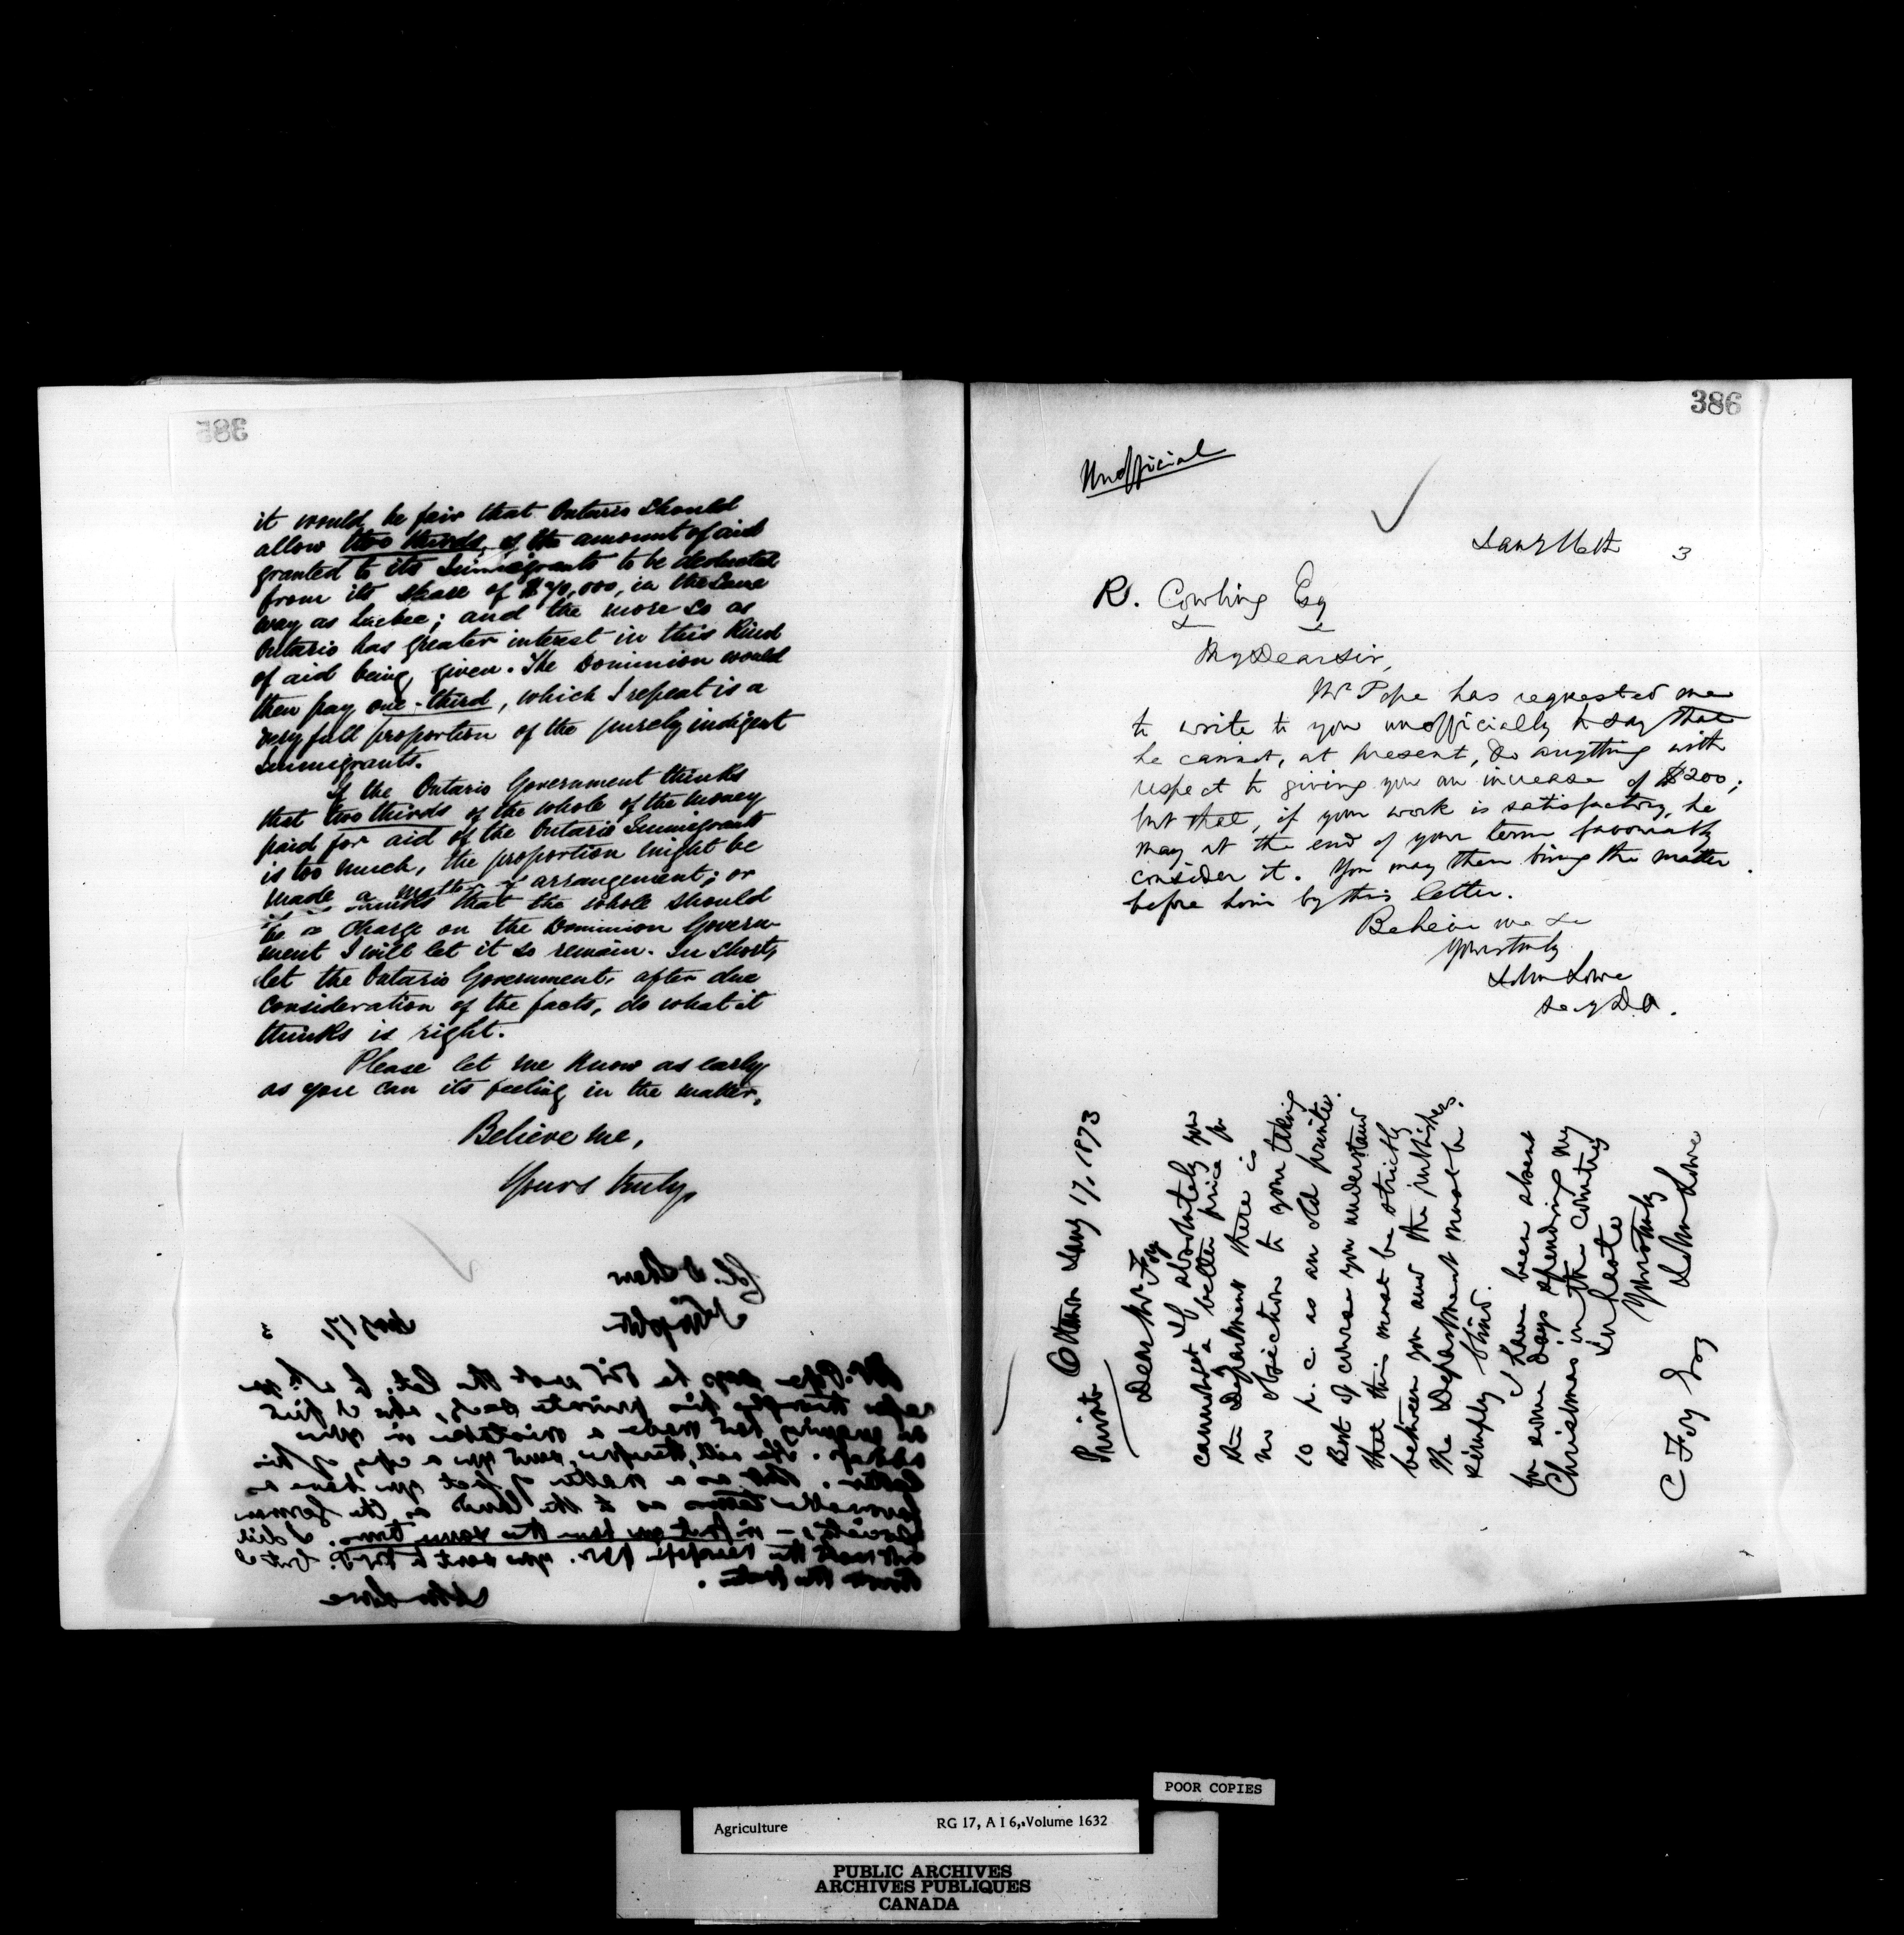 385
it would be fair that Ontario should
allow two thirds of the amount of aid
granted to its Immigrants to be deducted
from its share of $70,000, in the same
way as Quebec; and the more so as
Ontario has greater interest in this Kind
of aid being given. The Dominion would
then pay one-third, which I repeat is a
very full proportion of the purely indigent
Immigrants.
If the Ontario Government thinks
that two thirds of the whole of the money
paid for aid of the Ontario Immigrants
is too much, the proportion might be
made a matter of arrangement; or
if it thinks that the whole should
be a charge on the Dominion Govern-
ment I will let it so remain. In short,
let the Ontario Government, after due
consideration of the facts, do what it
thinks is right.
Please let me know as early
as you can its feeling in the matter,
Believe me,
Yours truly,
Col. Shaw
Jany 17, 3
Mr. Pope says he
his private Secy, who I find
on enquiry has made a mistake in your
address. He will, therefore, send you a copy of his
letter. But as a matter of fact you have as
favourable terms as to the land as the German
Society, – in fact you have the same terms. I did
John Lowe
386
Unofficial
Jany 16th 3
R. Cowling Esq
My Dear Sir,
Mr Pope has requested me
to write to you unofficially to say that
he cannot, at present, do anything with
respect to giving you an increase of $200;
but that, if your work is satisfactory, he
may at the end of your term favourably
consider it. You may then bring the matter
before him by this letter.
Believe me &c
Yours truly
John Lowe
Secy D.A.
Private Ottawa Jany 17, 1873
Dear Mr Foy
If absolutely you
cannot get a better price for
the Department there is
no objection to your taking
10 p.c. as an old printer.
But of course you understand
that this must be strictly
between you and the publishers.
The Department must be
simply blind.
I have been absent
for some days spending my
Christmas in the country
In haste
Yours truly
John Lowe
C Foy Esq
POOR COPIES
Agriculture RG 17, A I 6, Volume 1632
PUBLIC ARCHIVES
ARCHIVES PUBLIQUES
CANADA